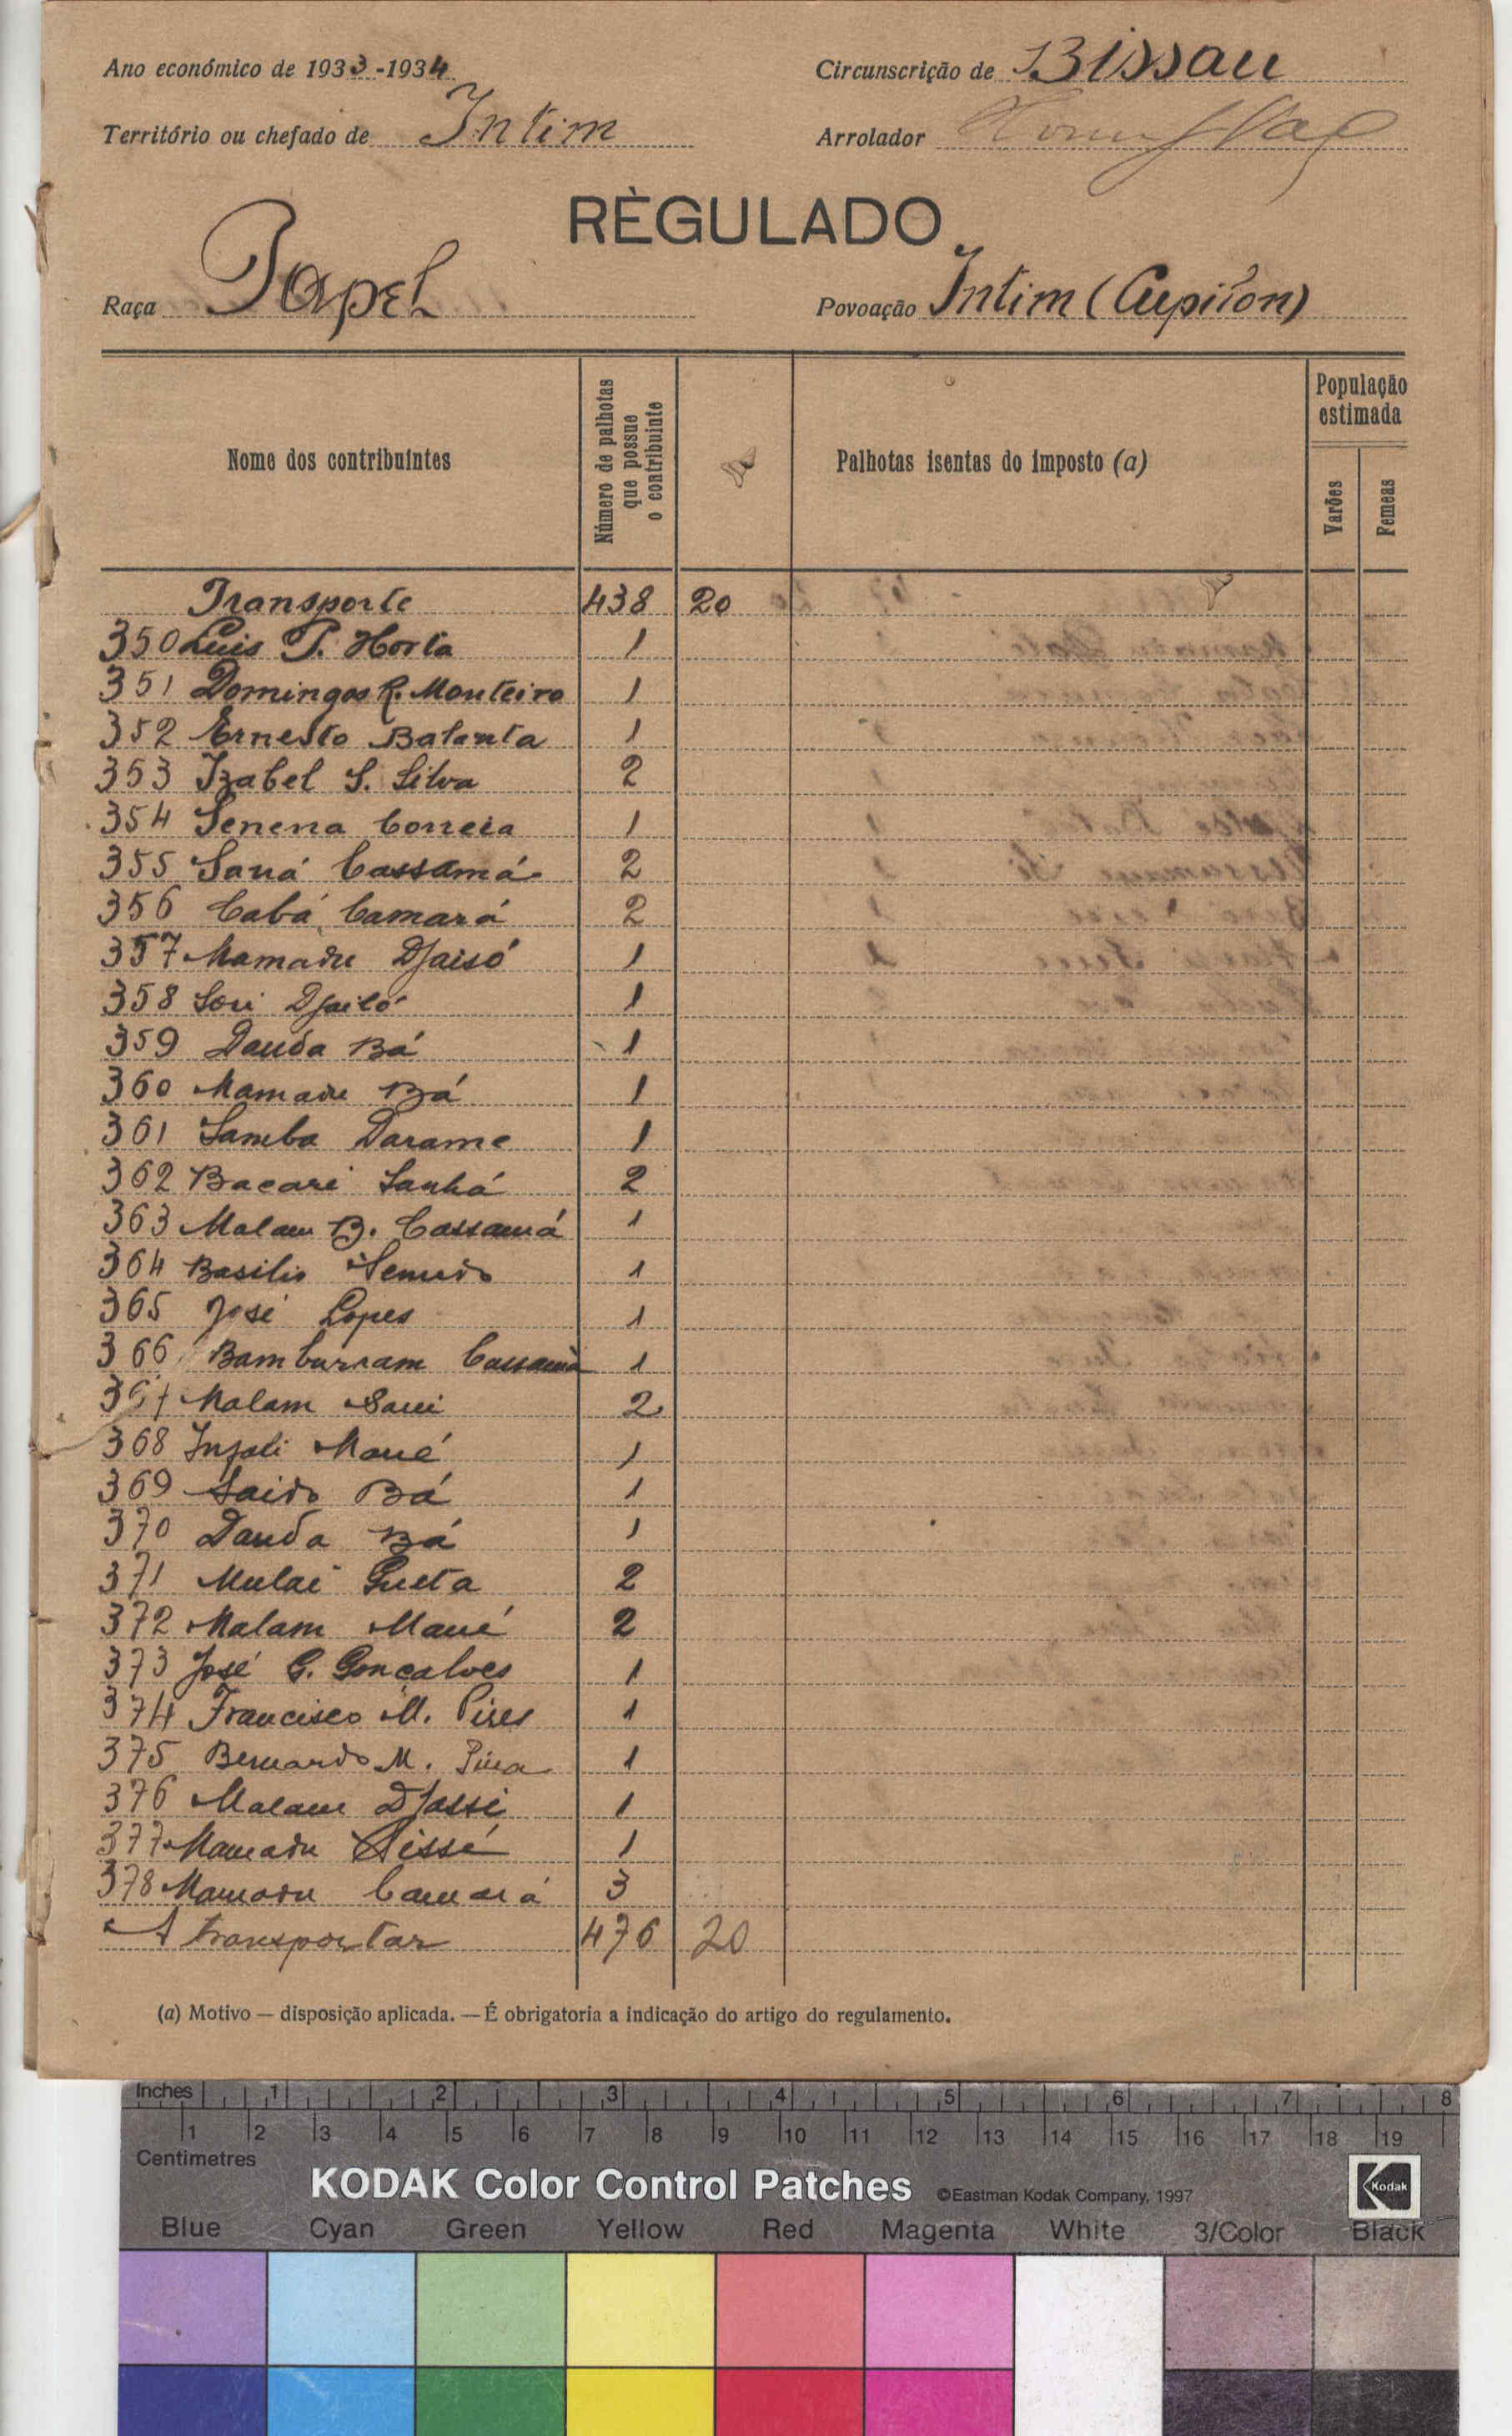 Ano económico de 1933-1934 Circunscrição de Bissau
Território ou chefado de Intim Arrolador
RÈGULADO
Raça Papel Povoação Intim (Cupilon)
Nome dos contribuintes
Número de palhotas que possue o contribuinte
Palhotas isentas do imposto (a)
População estimada
Varões
Femeas
Transporte 438 20
350 Luis P. Horta 1
351 Domingos R. Monteiro 1
352 Ernesto Balanta 1
353 Izabel S. Silva 2
354 Senena Correia 1
355 Saná Cassamá 2
356 Cabá Camará 2
357 Mamadu Djaisó 1
358 Sori Djailó 1
359 Dauda Bá 1
360 Mamadu Bá 1
361 Samba Darame 1
362 Bacari Sanhá 2
363 Malam B. Cassamá 1
364 Basilio Semedo 1
365 José Lopes 1
366 Bamburram Cassamá 1
367 Malam Sani 2
368 Injali Mané 1
369 Saido Bá 1
370 Dauda Bá 1
371 Mulai Gueta 2
372 Malam Mané 2
373 José G. Gonçalves 1
374 Francisco M. Pires 1
375 Bernardo M. Pina 1
376 Malam Djassi 1
377 Mamadu Sissé 1
378 Mamadu Camará 3
A transportar 476 20
(a) Motivo — disposição aplicada. — É obrigatoria a indicação do artigo do regulamento.
Inches 1 2 3 4 5 6 7 8
1 2 3 4 5 6 7 8 9 10 11 12 13 14 15 16 17 18 19
Centimetres
KODAK Color Control Patches ©Eastman Kodak Company, 1997 Kodak
Blue Cyan Green Yellow Red Magenta White 3/Color Black